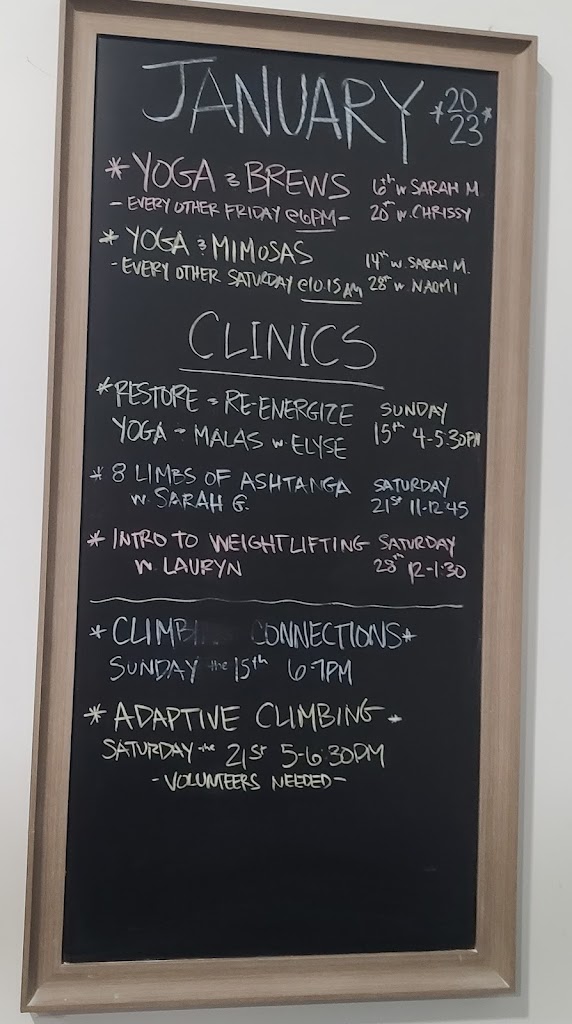 JANUARY *20
23*
* YOGA & BREWS 6th w SARAH M
- EVERY OTHER FRIDAY @6PM - 20th w. CHRISSY
* YOGA & MIMOSAS 14th w. SARAH M.
- EVERY OTHER SATURDAY @10:15 AM 28th w NAOMI
CLINICS
* RESTORE & RE-ENERGIZE SUNDAY
YOGA + MALAS w ELYSE 15th 4-5:30PM
* 8 LIMBS OF ASHTANGA SATURDAY
w. SARAH G. 21st 11-12:45
* INTRO TO WEIGHTLIFTING SATURDAY
w. LAURYN 28th 12-1:30
* CLIMBING CONNECTIONS *
SUNDAY the 15th 6-7PM
* ADAPTIVE CLIMBING *
SATURDAY the 21st 5-6:30PM
- VOLUNTEERS NEEDED -